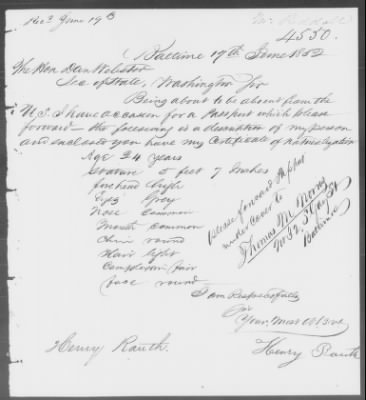 Recd June 19
4550.
Baltimore 17th June 1852
The Hon Dan Webster
Sec of State, Washington Sir
Being about to be absent from the
U,S. I have occasion for a Passport which please
forward — the foregoing is a description of my person
and enclosed you have my Certificate of Naturalization
Age 24 years
Stature 5 feet 7 Inches
forehead high
Eyes Grey
Nose Common
Mouth Common
Chin round
Hair light
Complexion fair
face round
please forward
under Cover to
Thomas M.
Baltimore
I am Respectfully
Your Most Obt Svt
Henry Rauth.
Henry Rauth